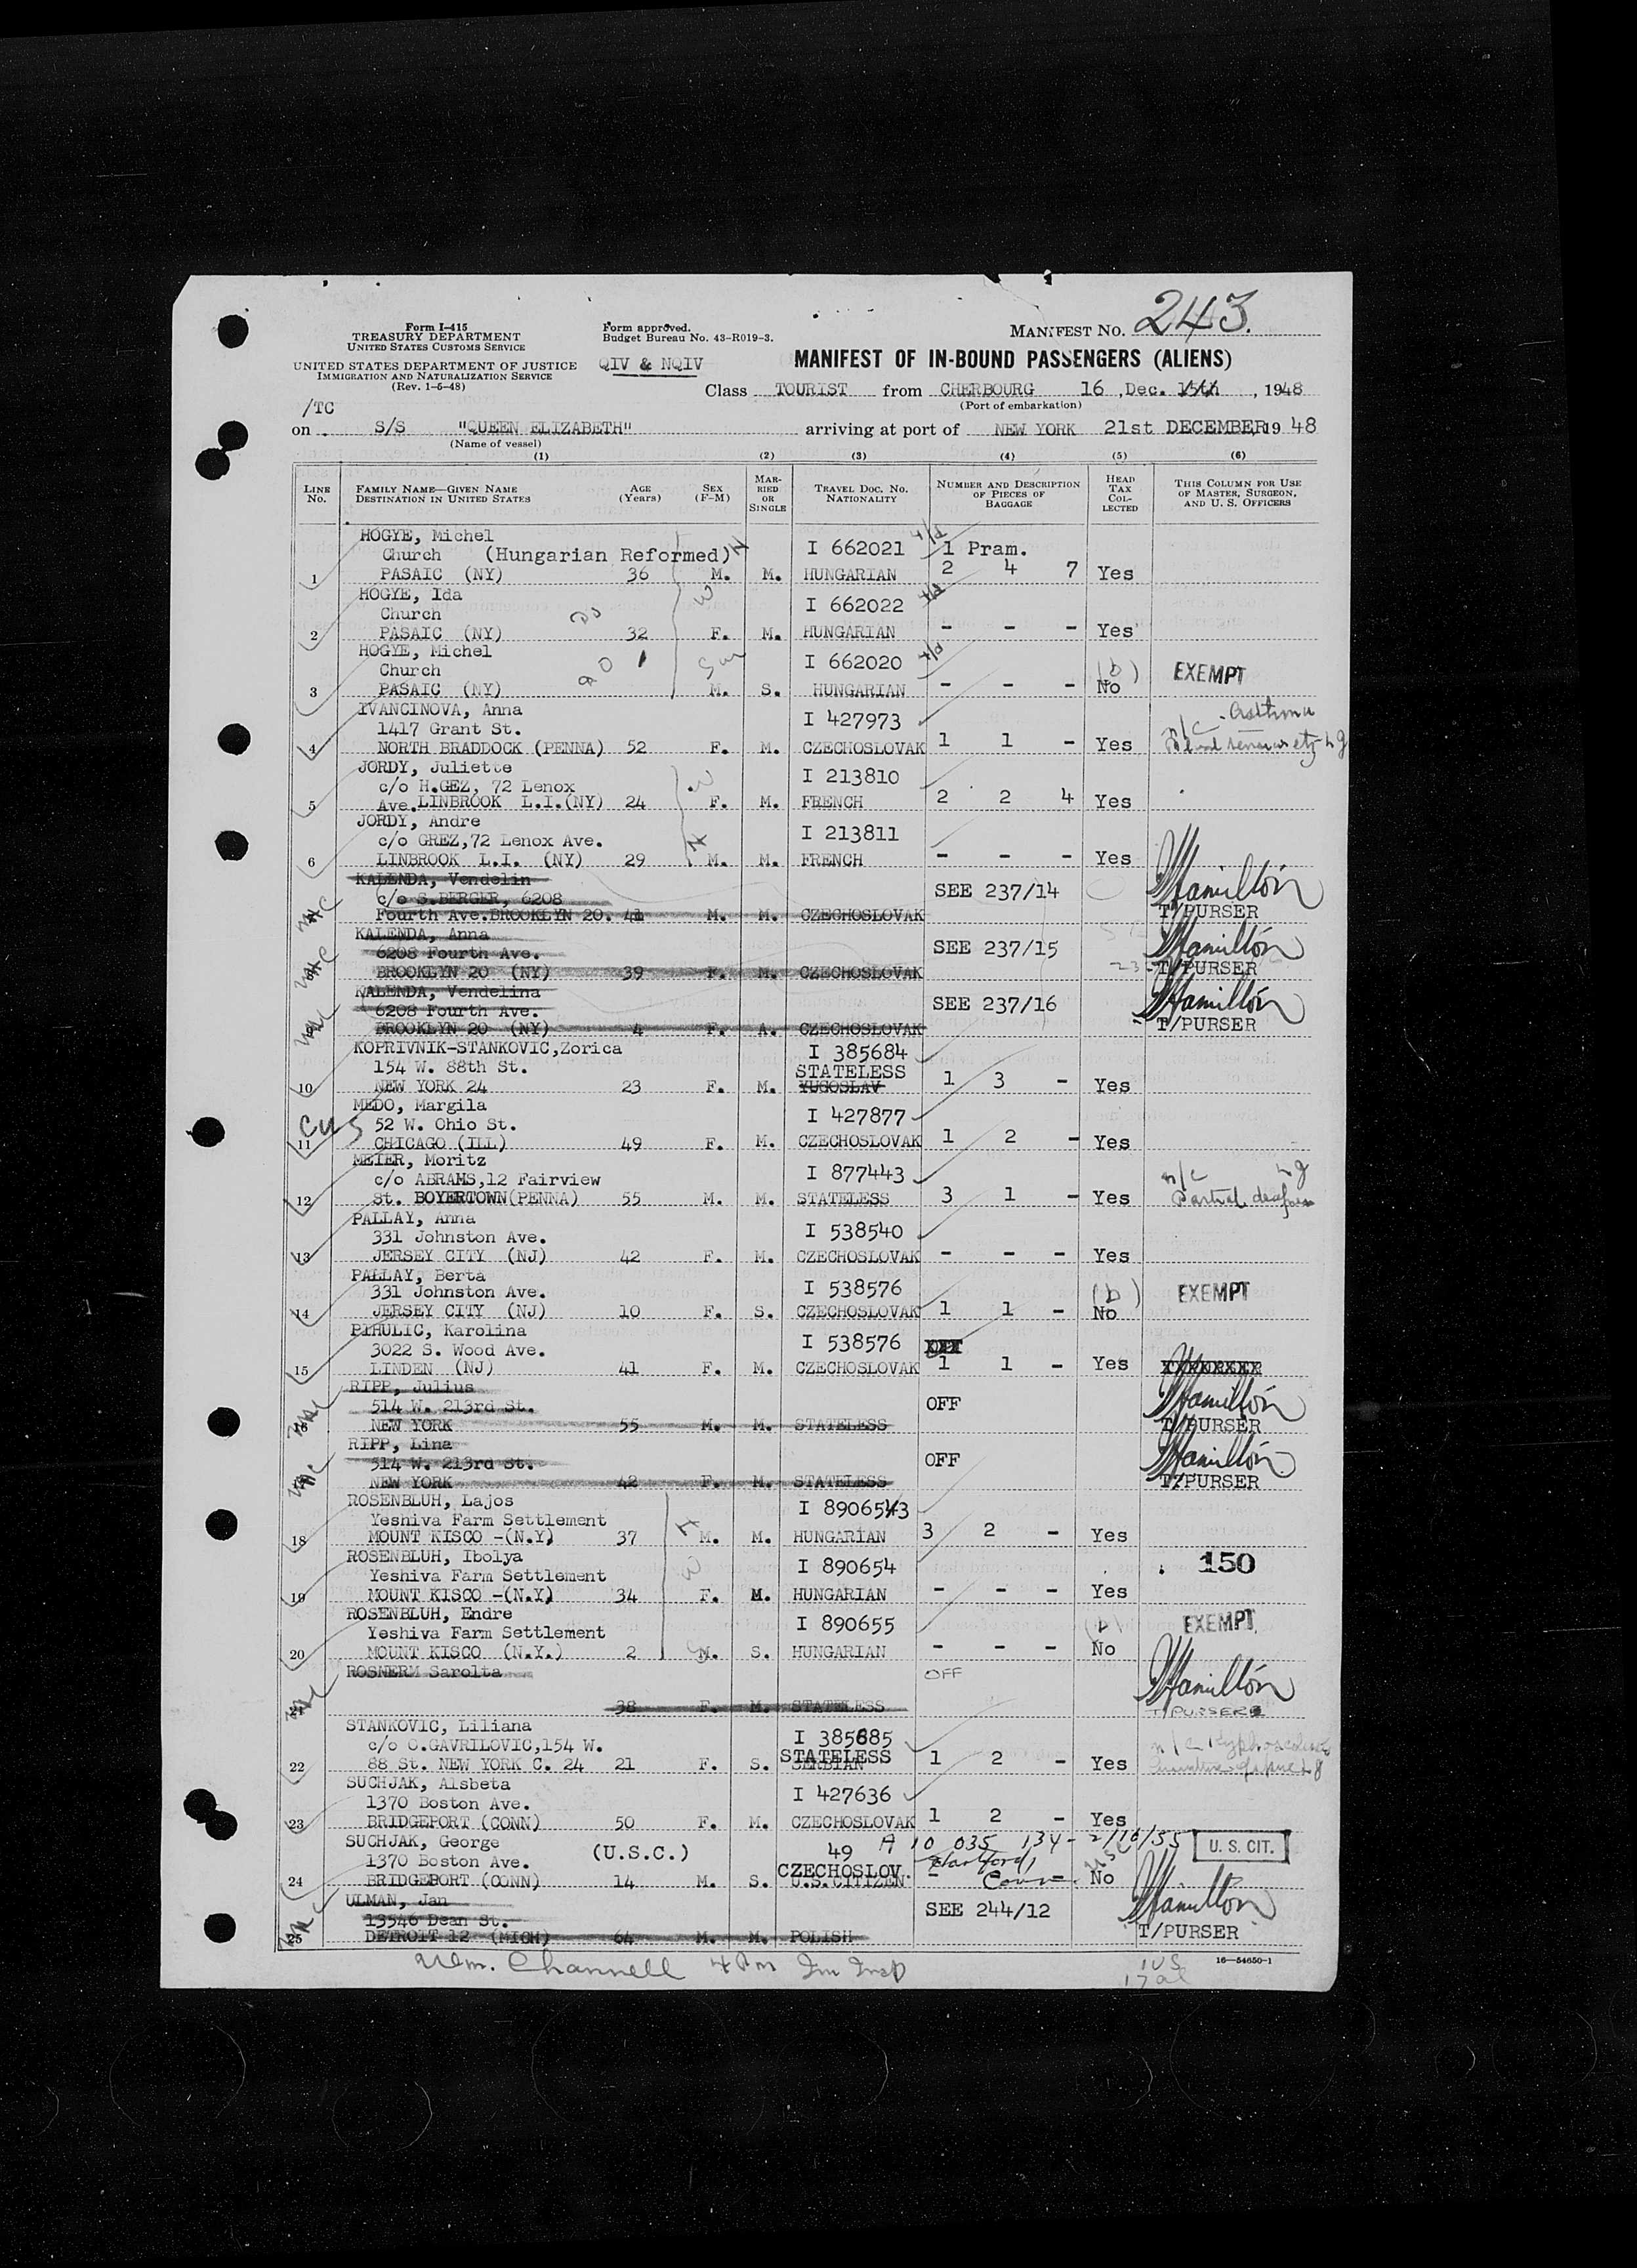 Form I-415
TREASURY DEPARTMENT
UNITED STATES CUSTOMS SERVICE
UNITED STATES DEPARTMENT OF JUSTICE
IMMIGRATION AND NATURALIZATION SERVICE
(Rev. 1-6-48)
Form approved.
Budget Bureau No. 43-R019-3.
QIV & NQIV
MANIFEST NO. 243.
MANIFEST OF IN-BOUND PASSENGERS (ALIENS)
Class TOURIST from CHERBOURG 16 , Dec. 15th , 1948
(Port of embarkation)
/TC
on S/S "QUEEN ELIZABETH" arriving at port of NEW YORK 21st DECEMBER 1948
(Name of vessel)
(1) (2) (3) (4) (5) (6)
LINE No. FAMILY NAME—GIVEN NAME DESTINATION IN UNITED STATES AGE (Years) SEX (F-M) MARRIED OR SINGLE TRAVEL DOC. NO. NATIONALITY NUMBER AND DESCRIPTION OF PIECES OF BAGGAGE HEAD TAX COLLECTED THIS COLUMN FOR USE OF MASTER, SURGEON, AND U. S. OFFICERS
HOGYE, Michel
Church (Hungarian Reformed) I 662021 1 Pram.
1 PASAIC (NY) 36 M. M. HUNGARIAN 2 4 7 Yes
HOGYE, Ida
Church I 662022
2 PASAIC (NY) 32 F. M. HUNGARIAN - - - Yes
HOGYE, Michel
Church I 662020 (b) EXEMPT
3 PASAIC (NY) M. S. HUNGARIAN - - - No
IVANCINOVA, Anna
1417 Grant St. I 427973 n/c Asthma
4 NORTH BRADDOCK (PENNA) 52 F. M. CZECHOSLOVAK 1 1 - Yes
JORDY, Juliette
c/o H.GEZ, 72 Lenox I 213810
5 Ave.LINBROOK L.I.(NY) 24 F. M. FRENCH 2 2 4 Yes
JORDY, Andre
c/o GREZ,72 Lenox Ave. I 213811
6 LINBROOK L.I. (NY) 29 M. M. FRENCH - - - Yes
KALENDA, Vendelin
c/o S.BERGER, 6208 SEE 237/14 Hamilton
Fourth Ave.BROOKLYN 20. 41 M. M. CZECHOSLOVAK T/PURSER
KALENDA, Anna
6208 Fourth Ave. SEE 237/15 Hamilton
BROOKLYN 20 (NY) 39 F. M. CZECHOSLOVAK T/PURSER
KALENDA, Vendelina
6208 Fourth Ave. SEE 237/16 Hamilton
BROOKLYN 20 (NY) 4 F. A. CZECHOSLOVAK T/PURSER
KOPRIVNIK-STANKOVIC,Zorica I 385684
154 W. 88th St. STATELESS
10 NEW YORK 24 23 F. M. YUGOSLAV 1 3 - Yes
MEDO, Margila
52 W. Ohio St. I 427877
11 CHICAGO (ILL) 49 F. M. CZECHOSLOVAK 1 2 - Yes
MEIER, Moritz
c/o ABRAMS,12 Fairview I 877443 n/c
12 St. BOYERTOWN(PENNA) 55 M. M. STATELESS 3 1 - Yes Partial deafness
PALLAY, Anna
331 Johnston Ave. I 538540
13 JERSEY CITY (NJ) 42 F. M. CZECHOSLOVAK - - - Yes
PALLAY, Berta
331 Johnston Ave. I 538576 (b) EXEMPT
14 JERSEY CITY (NJ) 10 F. S. CZECHOSLOVAK 1 1 - No
PIHULIC, Karolina
3022 S. Wood Ave. I 538576
15 LINDEN (NJ) 41 F. M. CZECHOSLOVAK 1 1 - Yes
RIPP, Julius
514 W. 213rd St. OFF Hamilton
NEW YORK 55 M. M. STATELESS T/PURSER
RIPP, Lina
514 W. 213rd St. OFF Hamilton
NEW YORK 42 F. M. STATELESS T/PURSER
ROSENBLUH, Lajos
Yeshiva Farm Settlement I 890653
18 MOUNT KISCO -(N.Y) 37 M. M. HUNGARIAN 3 2 - Yes
ROSENBLUH, Ibolya
Yeshiva Farm Settlement I 890654 150
19 MOUNT KISCO -(N.Y) 34 F. M. HUNGARIAN - - - Yes
ROSENBLUH, Endre
Yeshiva Farm Settlement I 890655 (b) EXEMPT
20 MOUNT KISCO (N.Y.) 2 M. S. HUNGARIAN - - - No
ROSNERM Sarolta OFF Hamilton
38 F. M. STATELESS T/PURSER
STANKOVIC, Liliana
c/o O.GAVRILOVIC,154 W. I 385685 STATELESS
22 88 St. NEW YORK C. 24 21 F. S. SERBIAN 1 2 - Yes
SUCHJAK, Alsbeta
1370 Boston Ave. I 427636
23 BRIDGEPORT (CONN) 50 F. M. CZECHOSLOVAK 1 2 - Yes
SUCHJAK, George (U.S.C.) 49 A 10 035 134 - 2/16/55 U. S. CIT.
1370 Boston Ave. CZECHOSLOV. Hartford, USC
24 BRIDGEPORT (CONN) 14 M. S. U.S.CITIZEN - Conn - No
ULMAN, Jan
13546 Dean St. SEE 244/12 Hamilton
25 DETROIT 12 (MICH) 64 M. M. POLISH T/PURSER
Wm. Channell 4 Pm Im Insp
1 US
17 al
16—54650-1